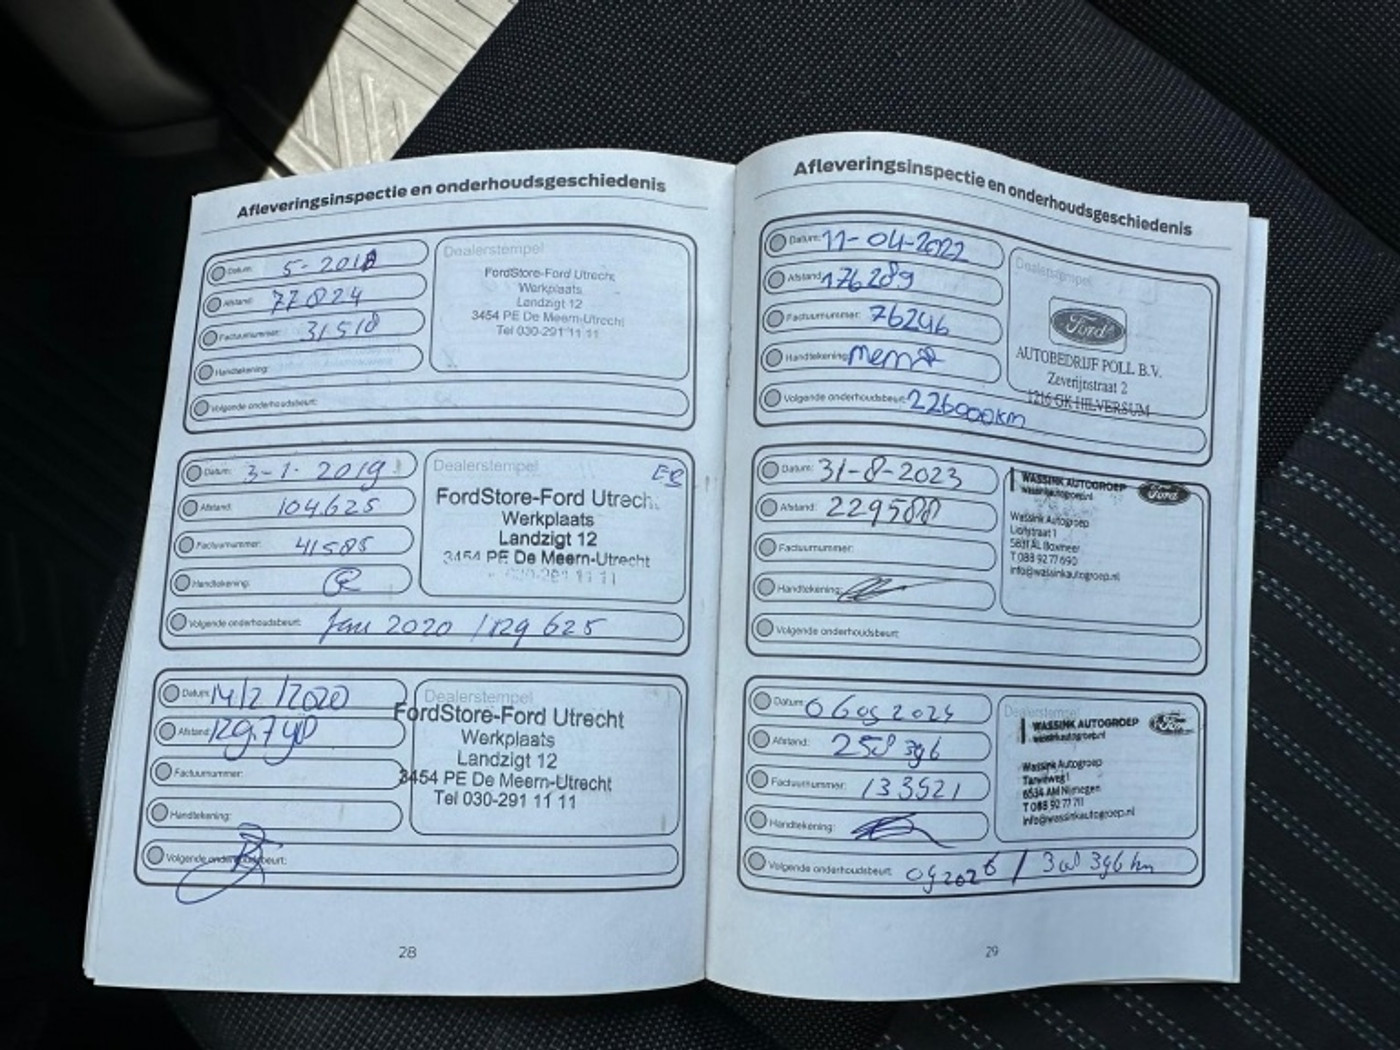 Afleveringsinspectie en onderhoudsgeschiedenis
Datum: 5-2018
Afstand: 77824
Factuurnummer: 31518
Handtekening:
Volgende onderhoudsbeurt:
Dealerstempel
FordStore-Ford Utrecht
Werkplaats
Landzigt 12
3454 PE De Meern-Utrecht
Tel 030-291 11 11
Datum: 3-1-2019
Afstand: 104625
Factuurnummer: 41585
Handtekening:
Volgende onderhoudsbeurt: Jan 2020 / 129 625
Dealerstempel
FordStore-Ford Utrech
Werkplaats
Landzigt 12
3454 PE De Meern-Utrecht
030-291 11 11
Datum: 14/2/2020
Afstand: 129.740
Factuurnummer:
Handtekening:
Volgende onderhoudsbeurt:
Dealerstempel
FordStore-Ford Utrecht
Werkplaats
Landzigt 12
3454 PE De Meern-Utrecht
Tel 030-291 11 11
28
Afleveringsinspectie en onderhoudsgeschiedenis
Datum: 11-04-2022
Afstand: 176289
Factuurnummer: 76246
Handtekening:
Volgende onderhoudsbeurt: 226000km
Dealerstempel
Ford
AUTOBEDRIJF POLL B.V.
Zeverijnstraat 2
1216 GK HILVERSUM
Datum: 31-8-2023
Afstand: 229588
Factuurnummer:
Handtekening:
Volgende onderhoudsbeurt:
WASSINK AUTOGROEP
wassinkautogroep.nl
Ford
Wassink Autogroep
5831 AL Boxmeer
T 088 92 77 690
info@wassinkautogroep.nl
Datum: 06 09 2024
Afstand: 258 396
Factuurnummer: 133521
Handtekening:
Volgende onderhoudsbeurt: 09 2026 / 308 396 km
Dealerstempel
WASSINK AUTOGROEP
wassinkautogroep.nl
Ford
Wassink Autogroep
Tarweweg 1
6534 AM Nijmegen
T 088 92 77 711
info@wassinkautogroep.nl
29